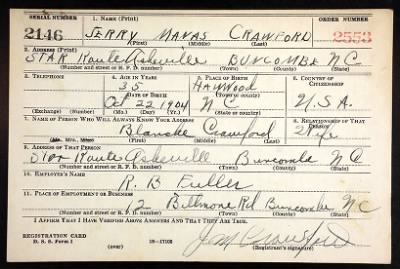 SERIAL NUMBER 1. NAME (Print) ORDER NUMBER
2146 JERRY MAVAS CRAWFORD 2553
(First) (Middle) (Last)
2. ADDRESS (Print)
STAR Route Asheville BUNCOMBE N.C.
(Number and street or R. F. D. number) (Town) (County) (State)
3. TELEPHONE 4. AGE IN YEARS 5. PLACE OF BIRTH 6. COUNTRY OF CITIZENSHIP
35 HAYWOOD
DATE OF BIRTH (Town or county)
Oct 22 1904 N C U.S.A.
(Exchange) (Number) (Mo.) (Day) (Yr.) (State or country)
7. NAME OF PERSON WHO WILL ALWAYS KNOW YOUR ADDRESS 8. RELATIONSHIP OF THAT PERSON
Blanche Crawford Wife
(Mr., Mrs., Miss) (First) (Middle) (Last)
9. ADDRESS OF THAT PERSON
Star Route Asheville Buncombe NC
(Number and street or R. F. D. number) (Town) (County) (State)
10. EMPLOYER'S NAME
R. B Fuller
11. PLACE OF EMPLOYMENT OR BUSINESS
12 Biltmore Rd Buncombe NC
(Number and street or R. F. D. number) (Town) (County) (State)
I AFFIRM THAT I HAVE VERIFIED ABOVE ANSWERS AND THAT THEY ARE TRUE.
REGISTRATION CARD
D. S. S. Form 1 16—17105 J M Crawford
(Registrant's signature)